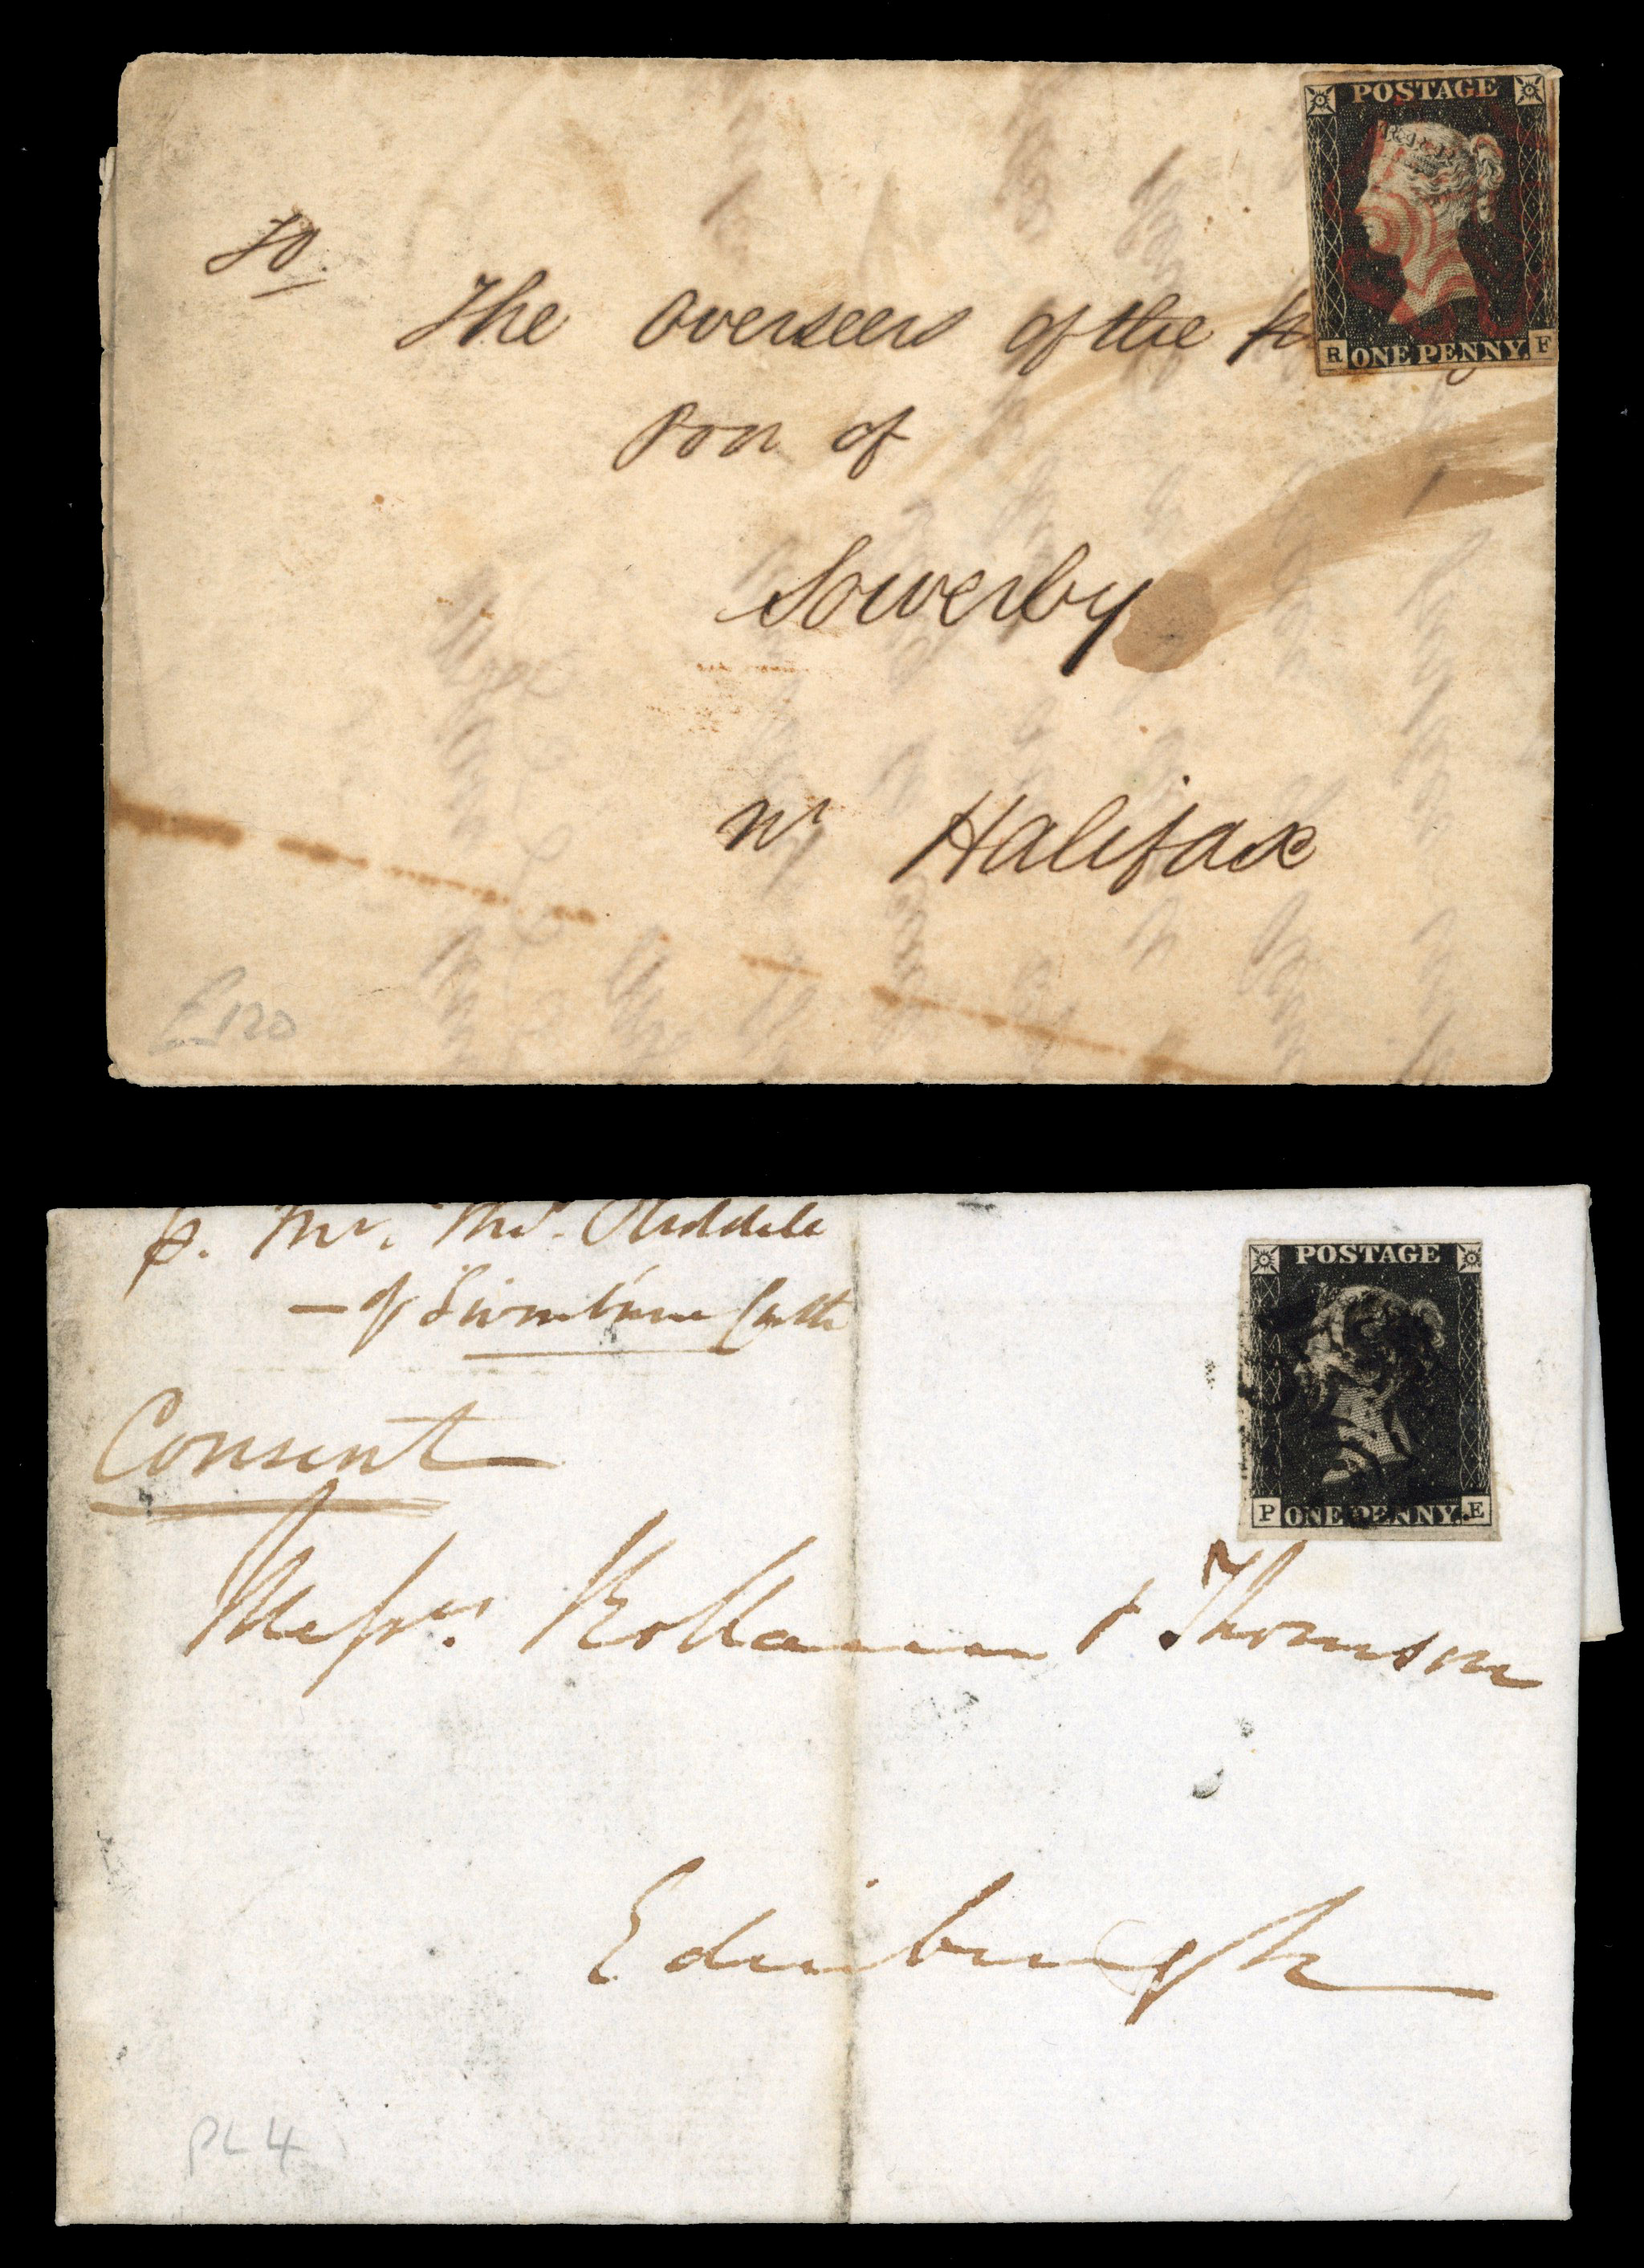 POSTAGE
To.
The Overseers of the
R ONE PENNY. F
Poor of
Sowerby
Nr Halifax
£120
p. Mr. Thos. Liddele
— of
Consent
POSTAGE
P ONE PENNY. E
Messrs. & Thomson
Edinburgh
PL 4